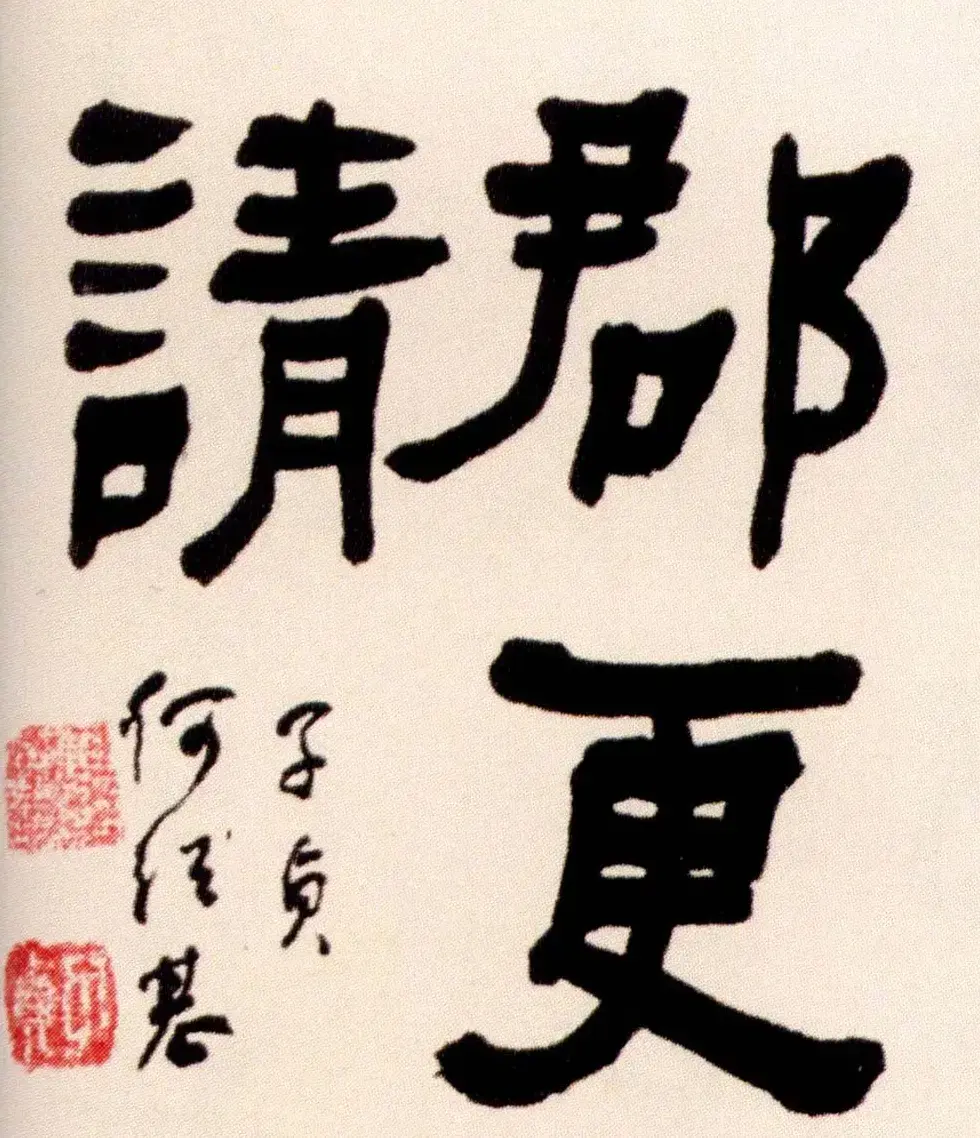 郡更
請
子貞
何紹基